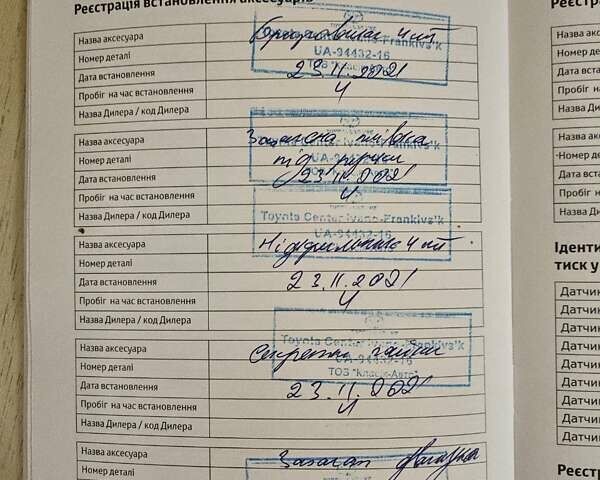 Реєстрація встановлення аксесуарів
Назва аксесуара Бризковики 4 шт.
Номер деталі
Дата встановлення 23.11.2021
Пробіг на час встановлення 4
Назва Дилера / код Дилера
UA-94432-16
Назва аксесуара Захисна плівка
Номер деталі під ручки
Дата встановлення 23.11.2021
Пробіг на час встановлення 4
Назва Дилера / код Дилера
Toyota Center Ivano-Frankivs'k
UA-94432-16
Назва аксесуара 4 шт
Номер деталі
Дата встановлення 23.11.2021
Пробіг на час встановлення 4
Назва Дилера / код Дилера
Toyota Center Ivano-Frankivs'k
UA-94432-16
ТОВ "Класик-Авто"
Назва аксесуара Секретні гайки
Номер деталі
Дата встановлення 23.11.2021
Пробіг на час встановлення 4
Назва Дилера / код Дилера
Назва аксесуара Захист двигуна
Номер деталі
Реєстр
Назва акс
Номер де
Дата вста
Пробіг н
Назва Ди
Назва ак
Номер д
Дата вст
Пробіг н
Назва Д
Іденти
тиск у
Датчик
Датчик
Датчик
Датчик
Датчик
Датчик
Датчик
Датчик
Датчик
Реєст
Назва